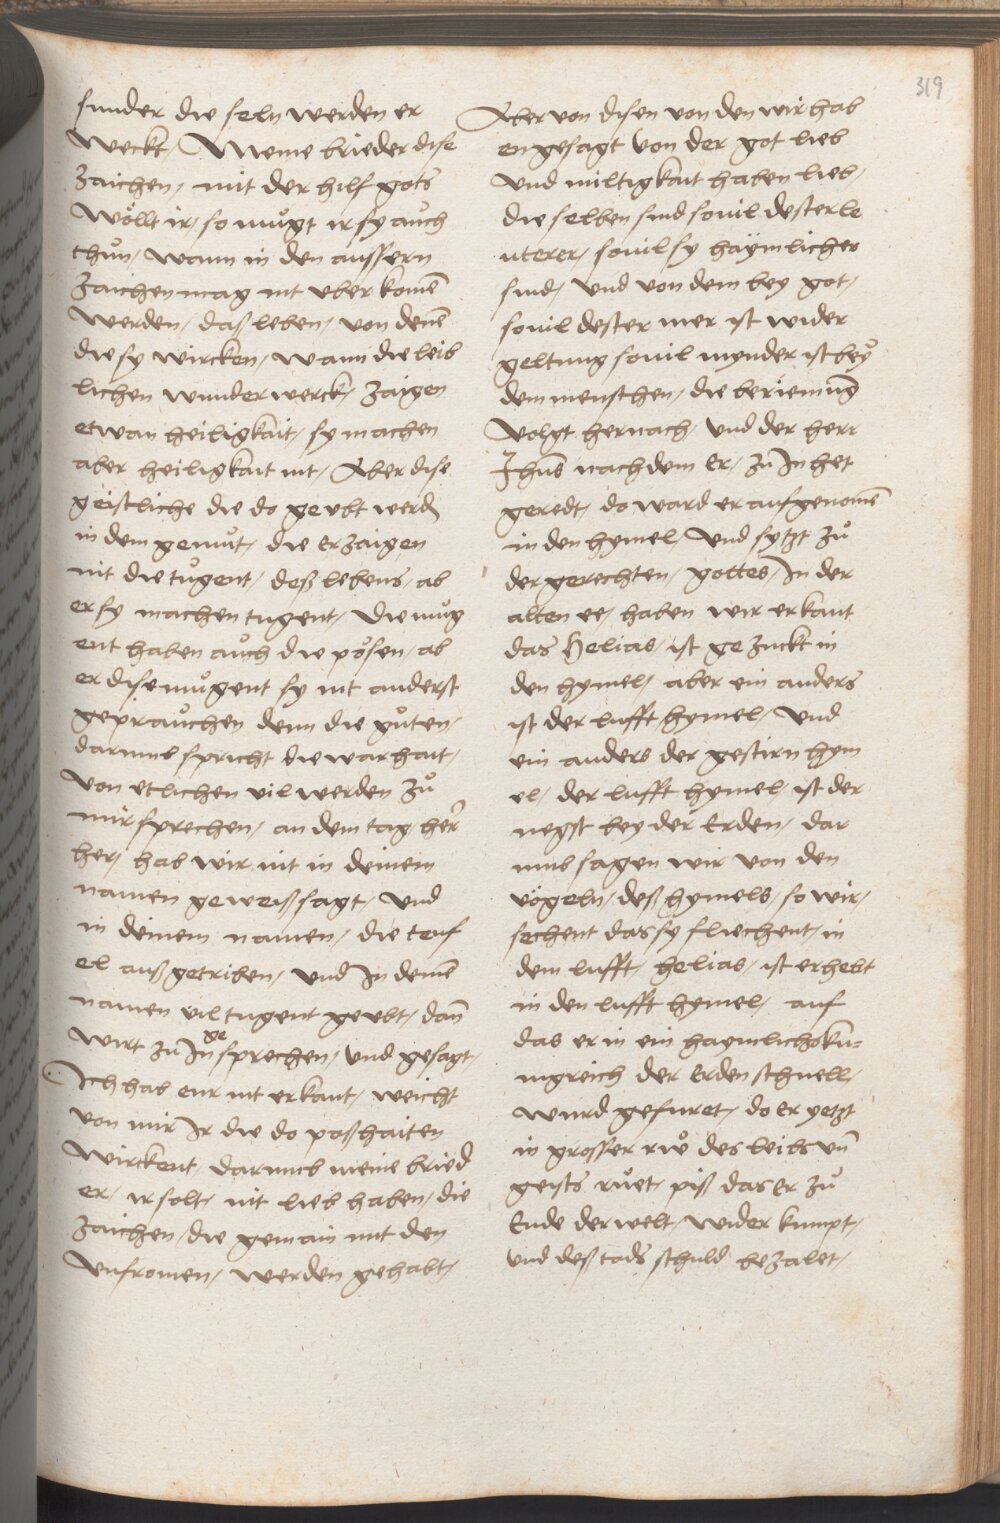 319
sunder die seln werden er
weckt / Meine brieder dise
zaichen / mit der hilf gots
wöllt ir / so mugt ir sy auch
thun / wann in den aussern
zaichen mag nit uber komē
werden / daß leben / von denē
die sy wircken / wann die leib
lichen wunderwerck / zaigen
etwan heiligkait / sy machen
aber heiligkait nit / Aber dise
geistliche die do geubt werd
in dem gemut / die erzaigen
nit die tugent / deß lebens / ab
er sy machen tugent / die mug
ent haben auch die pösen / ab
er dise mugent sy nit anderst
geprauchen denn die guten /
darumb spricht die warhait /
von etlichen vil werden zu
mir sprechen / an dem tag her
her / hab wir nit in deinem
namen geweissagt / und
in deinem namen / die teuf
el auß getriben / und In deinē
namen vil tugent geubt / dañ
wirt zu In gesprechen / und gesagt /
Ich hab eur nit erkant / weicht
von mir Ir die do poßhaiten
wirckent / darumb meine bried
er / ir solt / nit lieb haben / die
zaichen / die gemain mit den
unfromen / werden gehabt /
Aber von disen von den wir hab
en gesagt von der got lieb
und miltigkait haben lieb /
die selben sind souil dester le
uterer / souil sy haÿmlicher
sind / und von dem bey got /
souil dester mer ist wider
geltung souil mynder ist beÿ
dem menschen / die beriemūg
volgt hernach / und der herr
Jhūs nach dem Er / zu In het
geredt / do ward er aufgenomē
in den hymel / und sytzt zu
der gerechten / gottes / In der
alten ee / haben wir erkant
das Helias / ist gezuckt in
den hymel / aber ein anders
ist der lufft / hymel / und
ein anders der gestirn hym
el / der lufft hymel / ist der
negst bey der Erden / dar
umb sagen wir von den
vögeln / deß hymels / so wir /
sechent das sy fliechent / in
dem lufft / helias / ist erhebt
in den lufft hymel / auf
das er in ein haymlichs ku-
nigreich der Erden schnell /
wurd gefuret / do er yetzt
in grosser rw des leibs uñ
geists ruet / piß das Er zu
Ende der welt / wider kumpt /
und deß tods schuld bezalet /